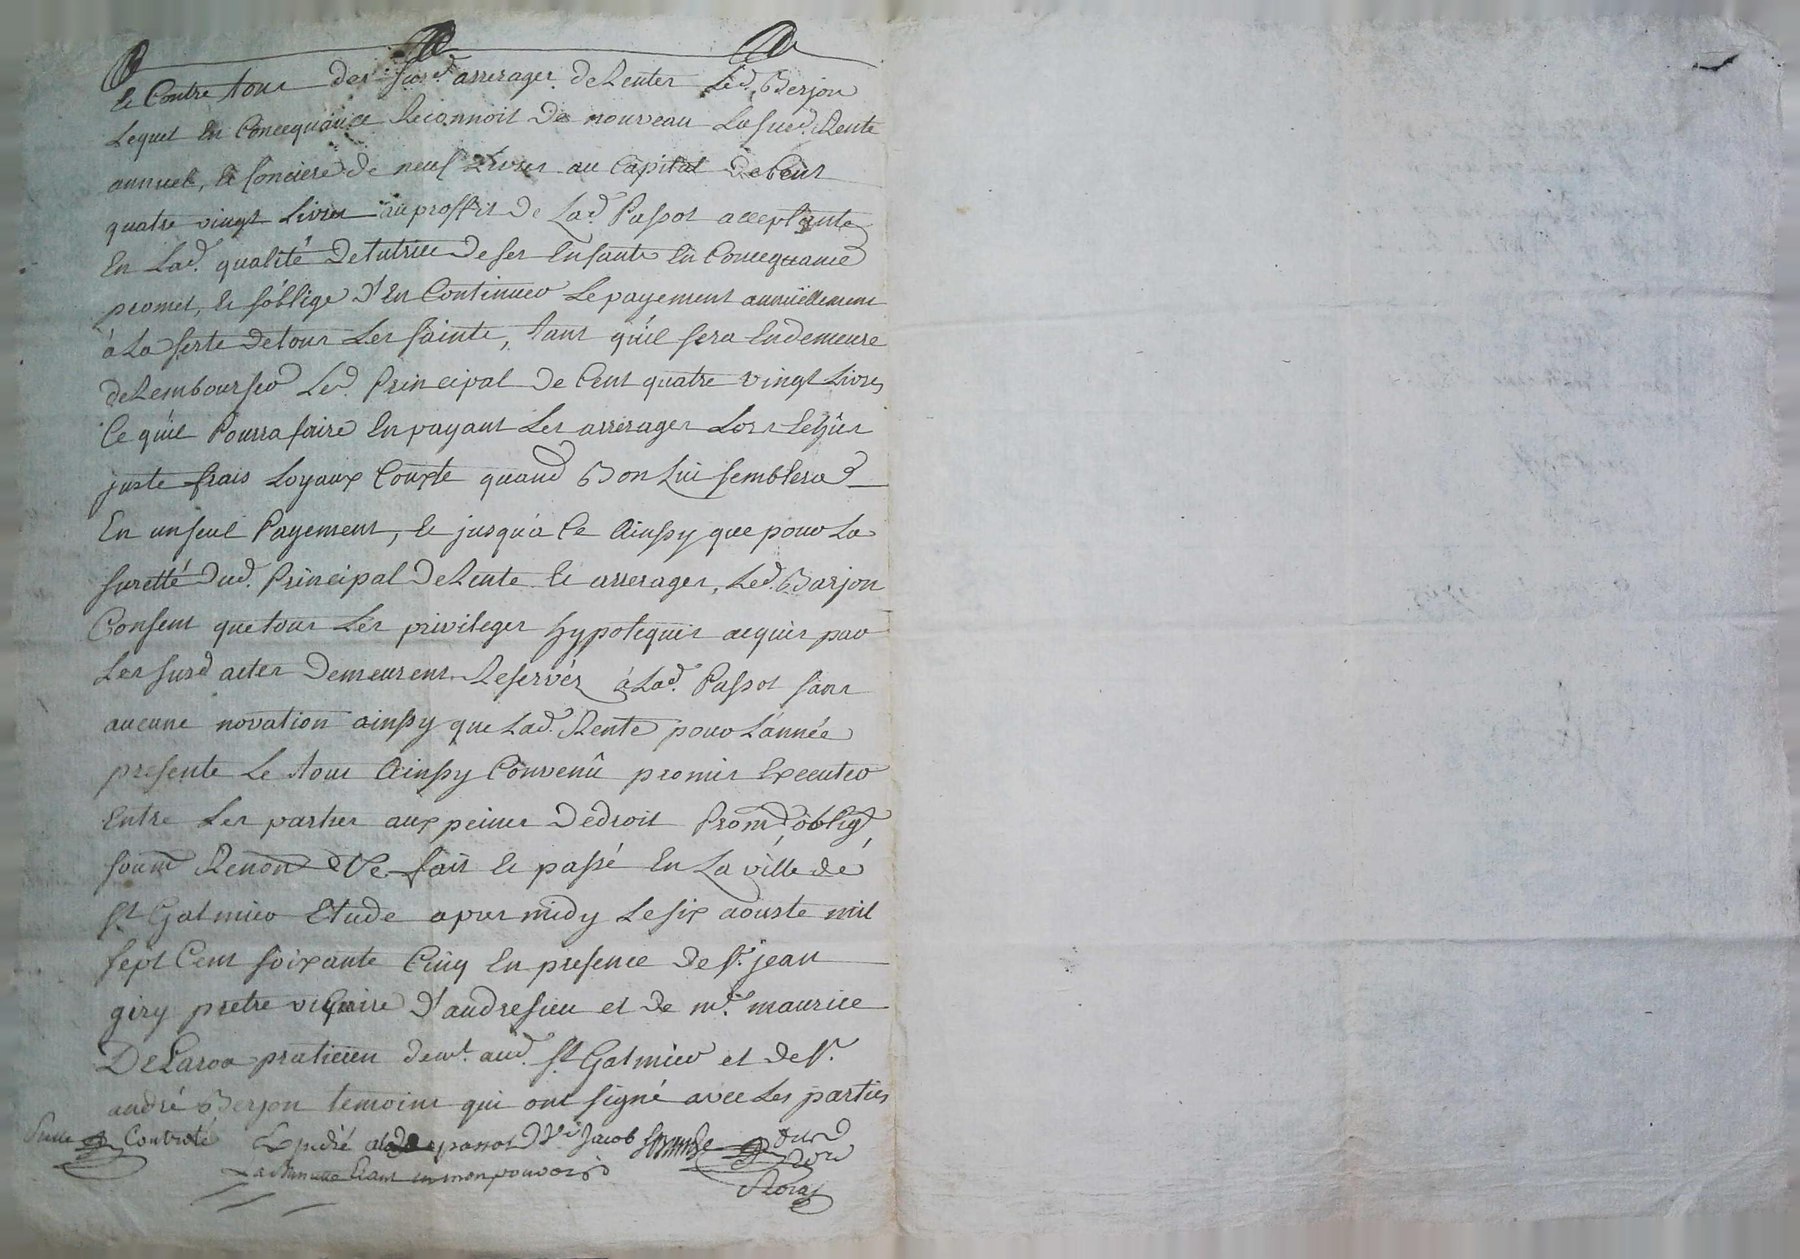 et Contre tous des susd. arrerages de Rentes Led. Berjon
Lequel En Concequance Reconnoit De nouveau La susd. Rente
annuel, et fonciere de neuf Livres au Capital De Cent
quatre vingt Livres au proffit De Lad. Passot acceptante
En Lad. qualité De tutrice De ses Enfants En Concequance
promet, et s'oblige d'En Continuer Le payement annuellement
à La feste De tous Les sainte, tant qu'il sera En demeure
de Rembourser Led. Principal De Cent quatre vingt Livres
Ce qu'il Pourra faire En payant Les arrerages Lors Echûs
juste frais Loyaux Couxte quand Bon Lui semblera
En un seul Payement, et jusqu'a Ce Ainssy que pour La
suretté Dud. Principal De Rente et arrerages, Led. Barjon
Consent que tous Les privileges hypoteques acquis par
Les susd actes Demeurent Reservéz à Lad. Passot sans
aucune novation ainssy que Lad. Rente pour L'année
presente Le tout Ainssy Convenû promis Executer
Entre Les parties aux peines De droit Prom.d oblig.d
soum Renond &c. fait et passé En La ville de
St Galmier Etude apres midy Le six aouste mil
sept Cent soixante Cinq En presence De sr. jean
giry pretre viquaire d'andresieu et De mr. maurice
De Laroa praticien demt. aud. St Galmier et De sr.
andré Berjon temoins qui ont signé avec Les parties
Controlé Expedié passot Jacob
La minutte Etant en mon pouvoir